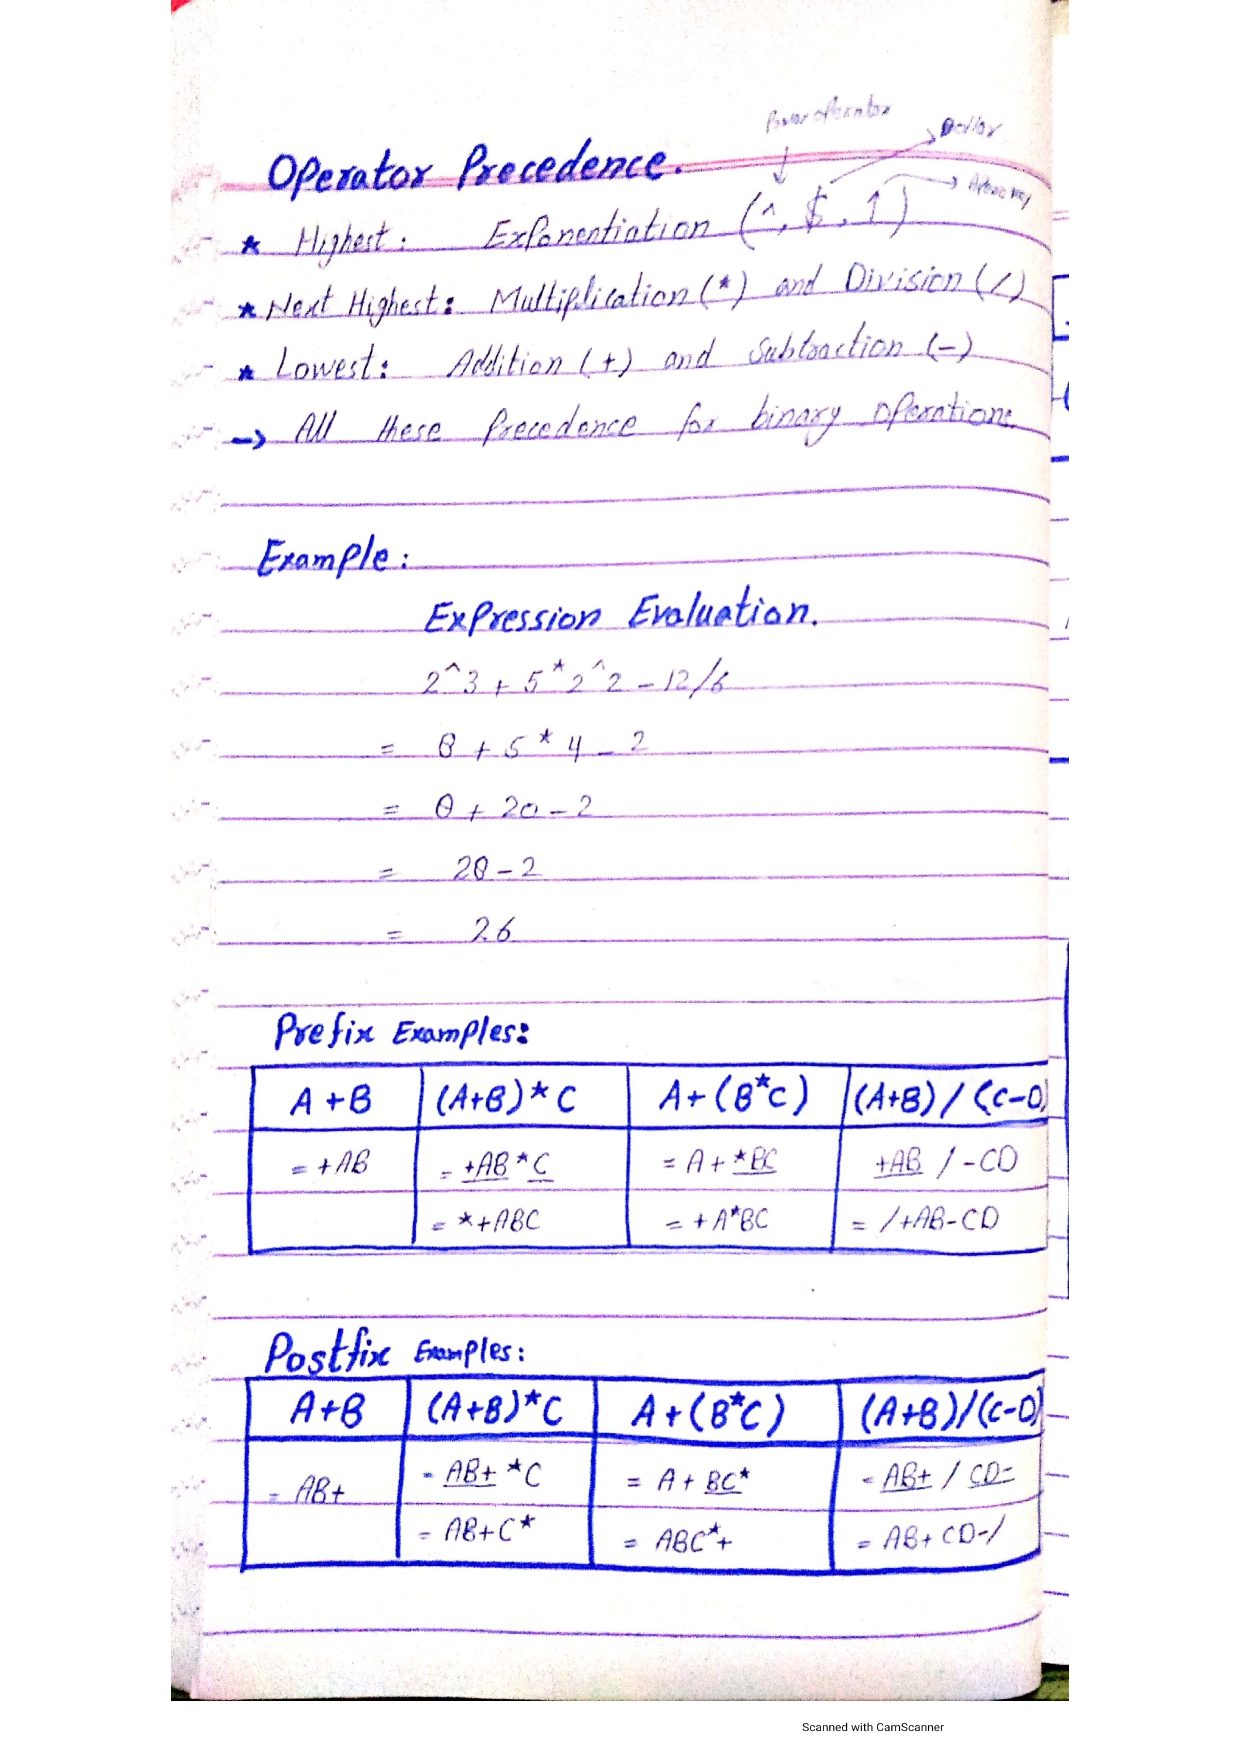 Power operator
Dollar
Operator Precedence.
* Highest: Exponentiation (^, $, ↑)
* Next Highest: Multiplication (*) and Division (/)
* Lowest: Addition (+) and Subtraction (-)
-> All these Precedence for binary operations.
Example:
Expression Evaluation.
2^3 + 5*2^2 - 12/6
= 8 + 5 * 4 - 2
= 8 + 20 - 2
= 28 - 2
= 26
Prefix Examples:
A+B (A+B)*C A+(B*C) (A+B)/(C-D)
= +AB = +AB*C = A+*BC +AB / -CD
= *+ABC = +A*BC = /+AB-CD
Postfix Examples:
A+B (A+B)*C A+(B*C) (A+B)/(C-D)
= AB+ - AB+ *C = A + BC* - AB+ / CD-
= AB+C* = ABC*+ = AB+CD-/
Scanned with CamScanner